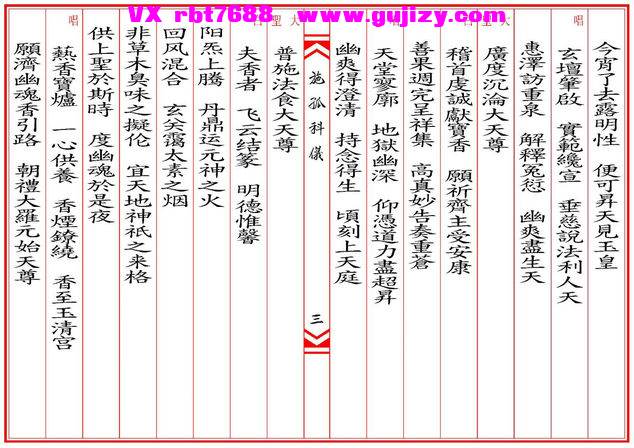 VX rbt7688 www.gujizy.com
今宵了去露明性 便可昇天見玉皇
唱
玄壇肇啟 實範纔宣 垂慈說法利人天
惠澤訪重泉 解釋冤愆 幽爽盡生天
廣度沉淪大天尊
稽首虔誠獻寶香 願祈齊主受安康
善果週完呈祥集 高真妙告奏重蒼
天堂寥廓 地獄幽深 仰憑道力盡超昇
幽爽得澄清 持念得生 頃刻上天庭
施孤科儀
三
大聖
普施法食大天尊
夫香者 飞云结篆 明德惟馨
阳炁上腾 丹鼎运元神之火
回风混合 玄关霭太素之烟
非草木臭味之擬伦 宜天地神祇之来格
供上聖於斯時 度幽魂於是夜
唱
熱香寶爐 一心供養 香煙繚繞 香至玉清宫
願濟幽魂香引路 朝禮大羅元始天尊